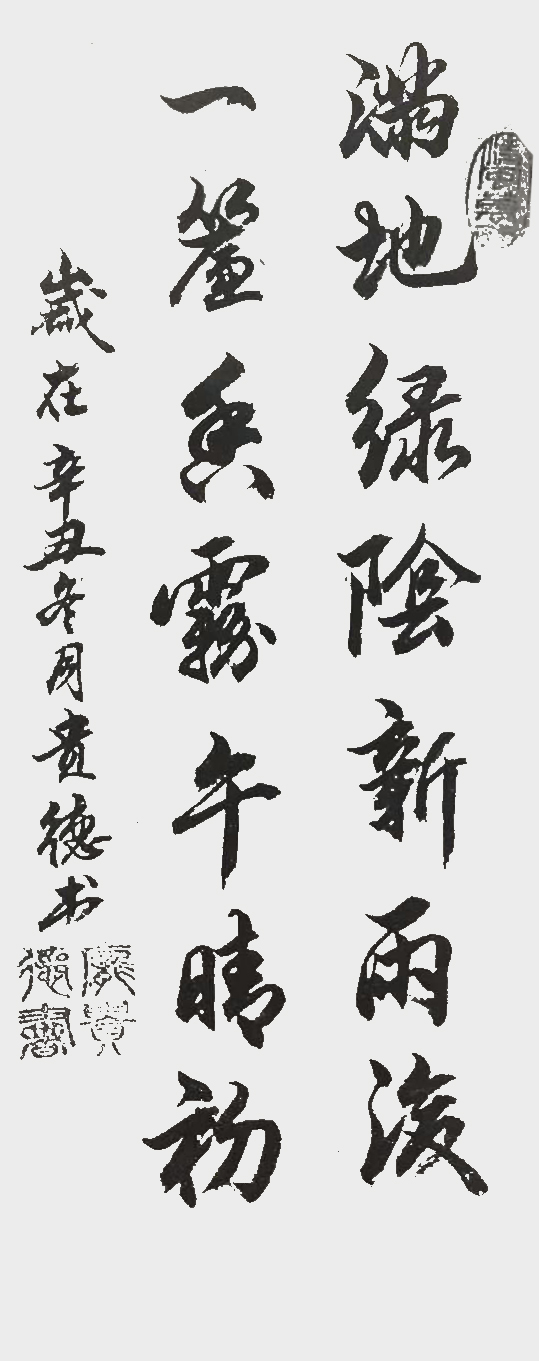 满地绿陰新雨後
一簾香霧午晴初
歲在辛丑冬月贵德书